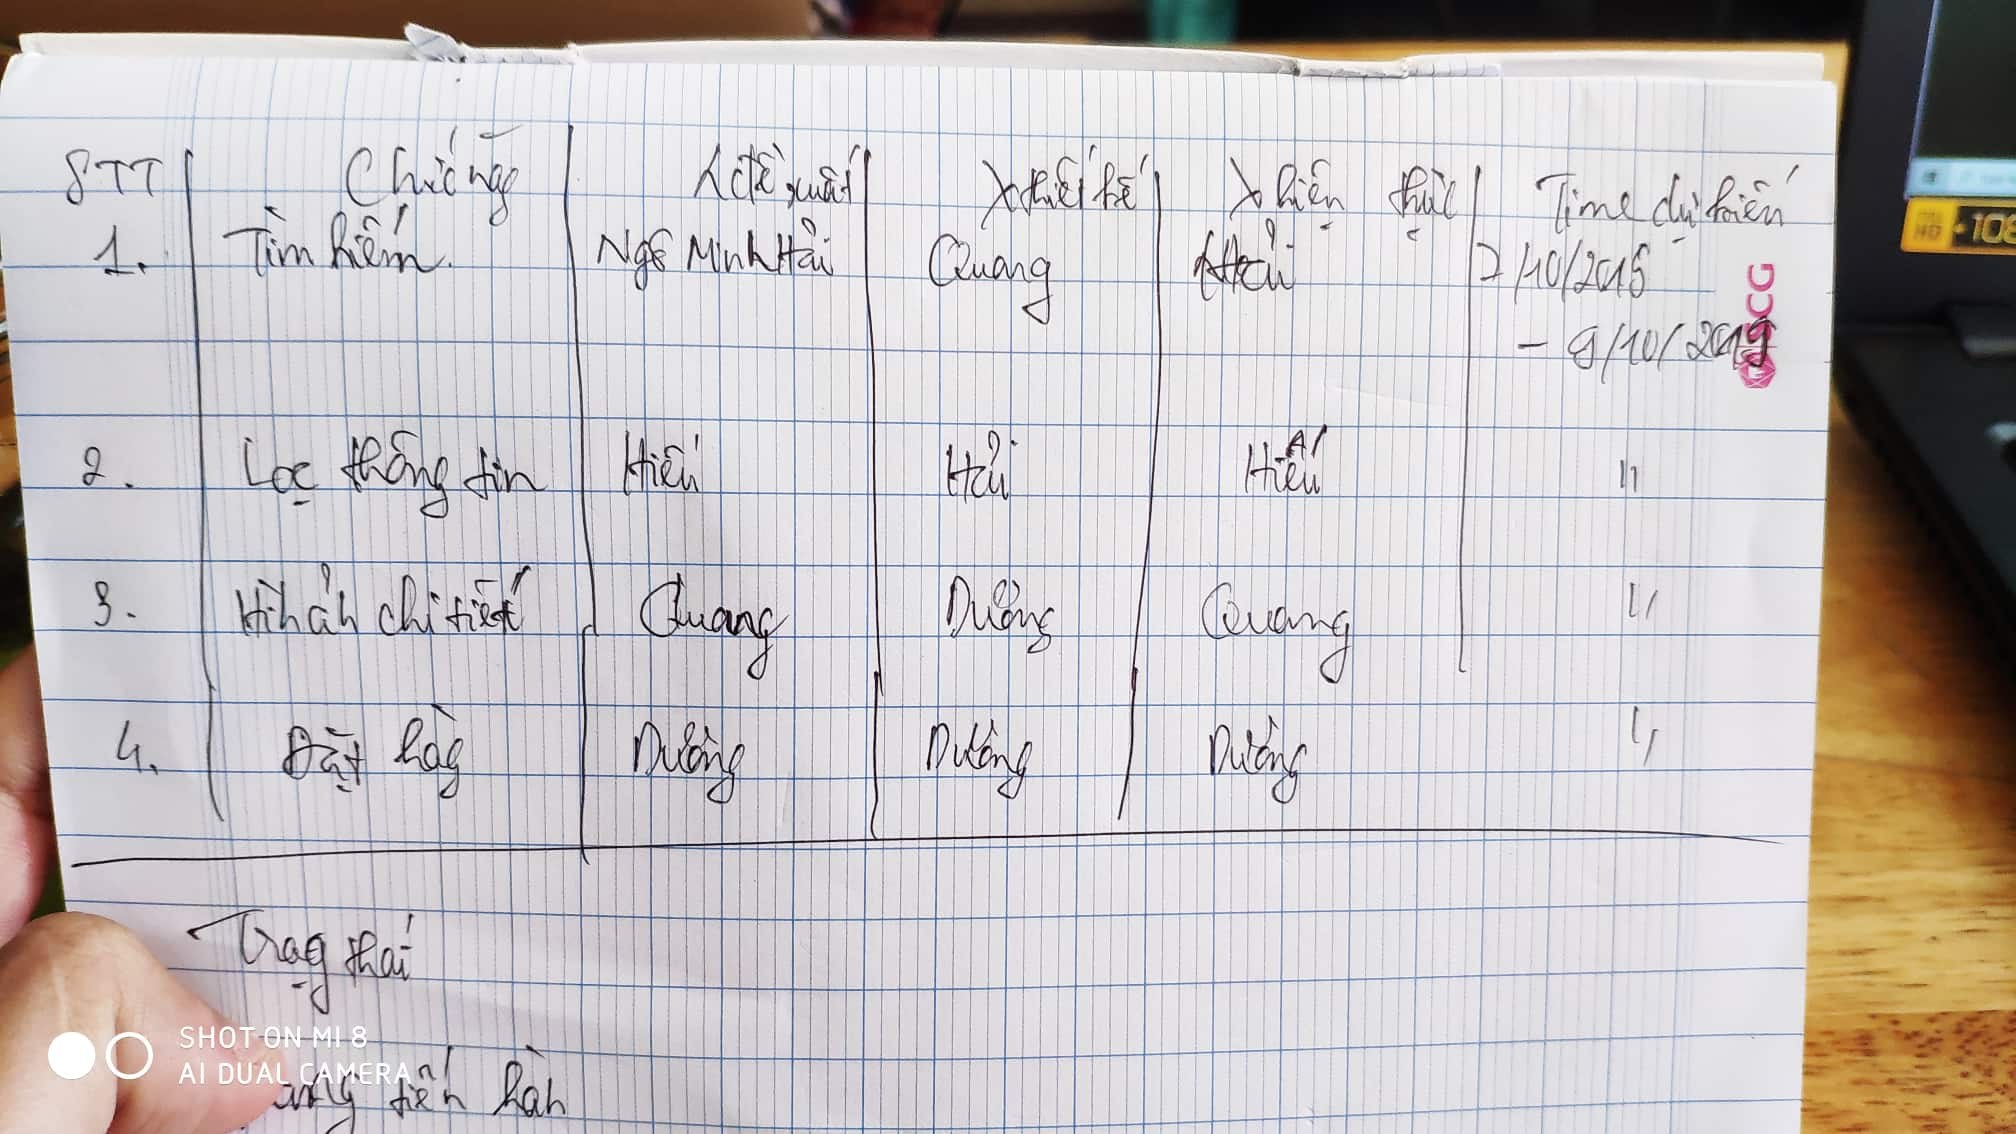 STT Chức năg λ đề xuất X thiết kế X hiện thực Time dự kiến
1. Tìm kiếm. Ngô Minh Hải Quang Hải 7/10/2015
- 9/10/2019
2. Lọc thông tin Hiếu Hải Hiếu "
3. Hìh ảh chi tiết Quang Dưỡng Quang "
4. Đặt hàg Dưỡng Dưỡng Dưỡng "
Trạg thái
tiến hàh
SHOT ON MI 8
AI DUAL CAMERA